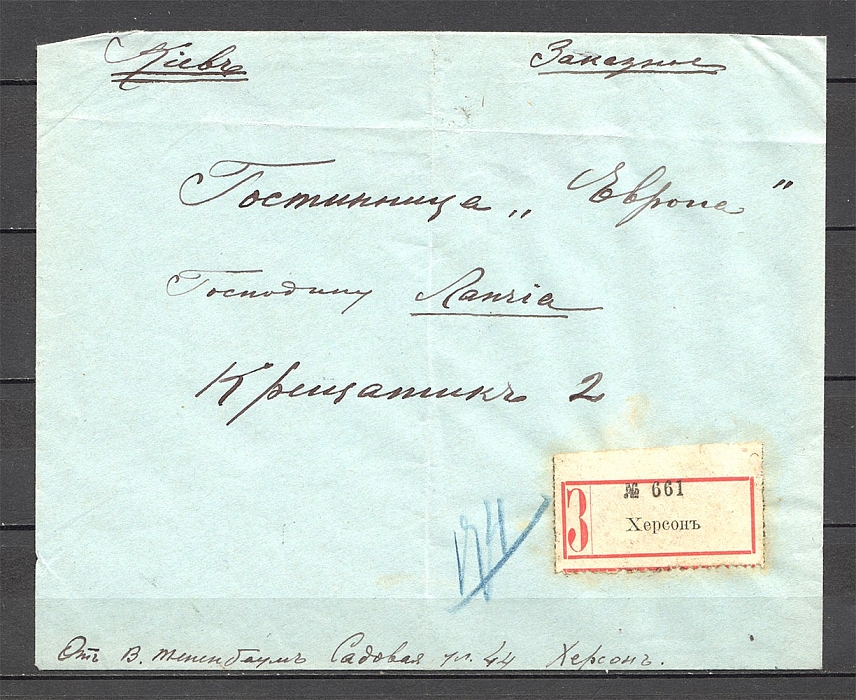 Кіевъ Заказное
Гостинница „ Европа "
Господину Ланчіа
Крещатикъ 2
№ 661
З Херсонъ
Отъ В. Тененбаумъ Садовая ул. 44 Херсонъ.